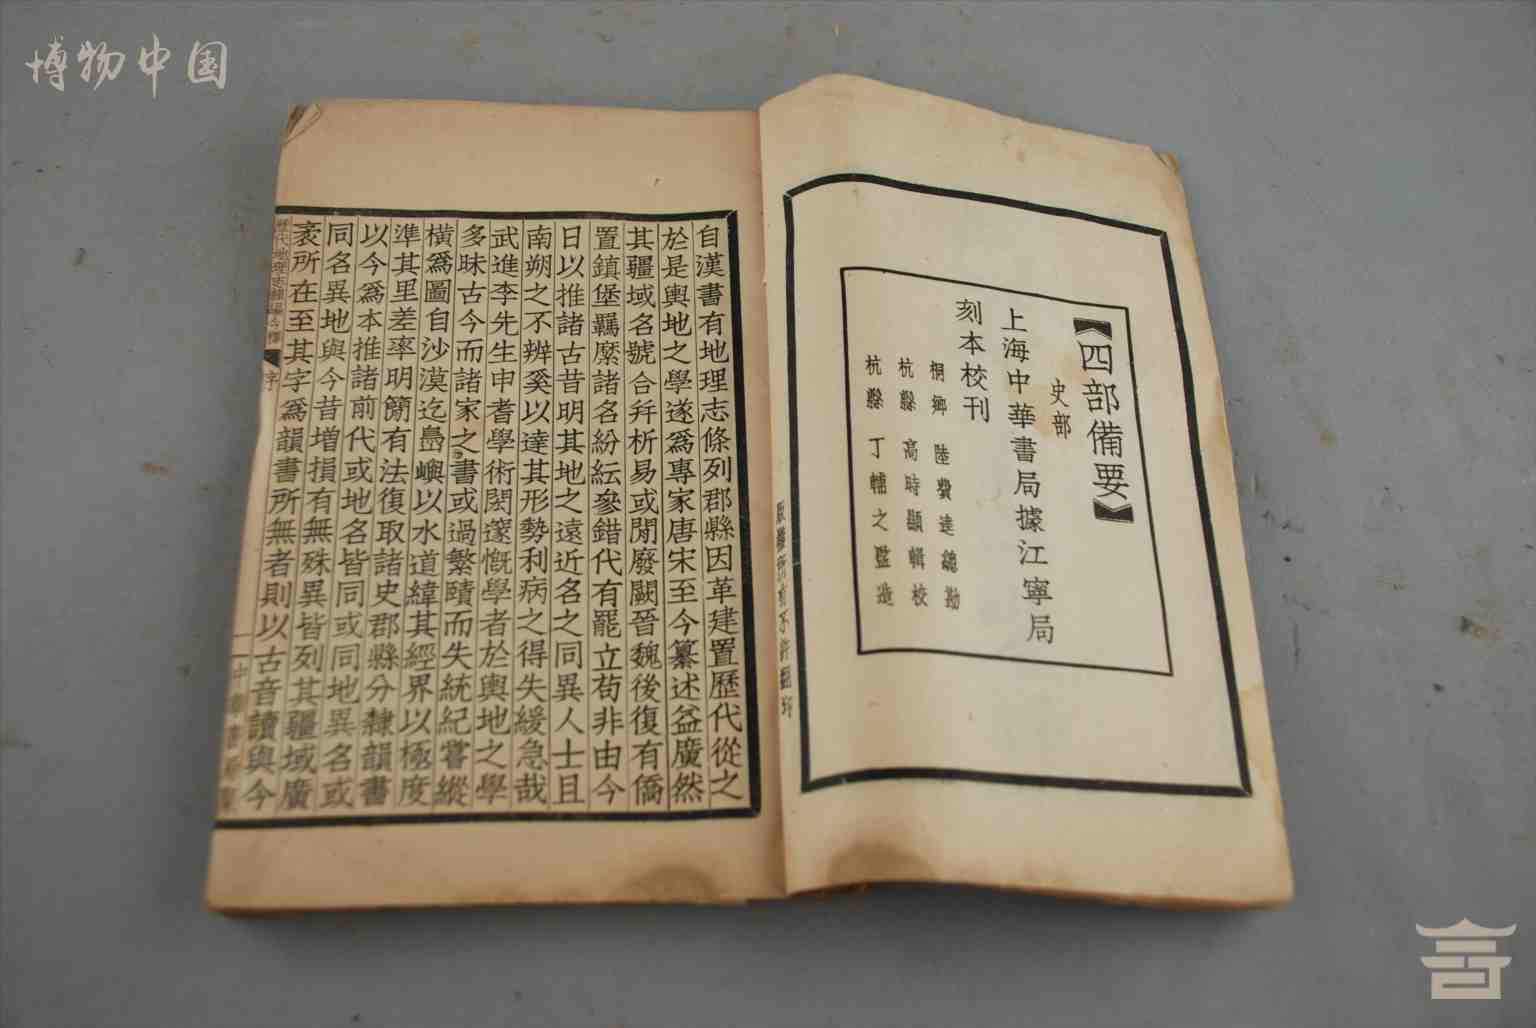 博物中国
【四部備要】
史部
上海中華書局據江寧局
刻本校刊
桐鄉 陸費逵總勘
杭縣 高時顯輯校
杭縣 丁輔之監造
版權所有不許翻印
自漢書有地理志條列郡縣因革建置歷代從之
於是輿地之學遂爲專家唐宋至今纂述益廣然
其疆域名號合幷析易或閒廢闕晉魏後復有僑
置鎮堡羈縻諸名紛紜參錯代有罷立苟非由今
日以推諸古昔明其地之遠近名之同異人士且
南朔之不辨奚以達其形勢利病之得失緩急哉
武進李先生申耆學術閎邃慨學者於輿地之學
多昧古今而諸家之書或過繁賾而失統紀嘗縱
橫爲圖自沙漠迄島嶼以水道緯其經界以極度
準其里差率明簡有法復取諸史郡縣分隸韻書
以今爲本推諸前代或地名皆同或同地異名或
同名異地與今昔增損有無殊異皆列其疆域廣
袤所在至其字爲韻書所無者則以古音讀與今
歷代地理志韻編今釋 序
一 中華書局聚